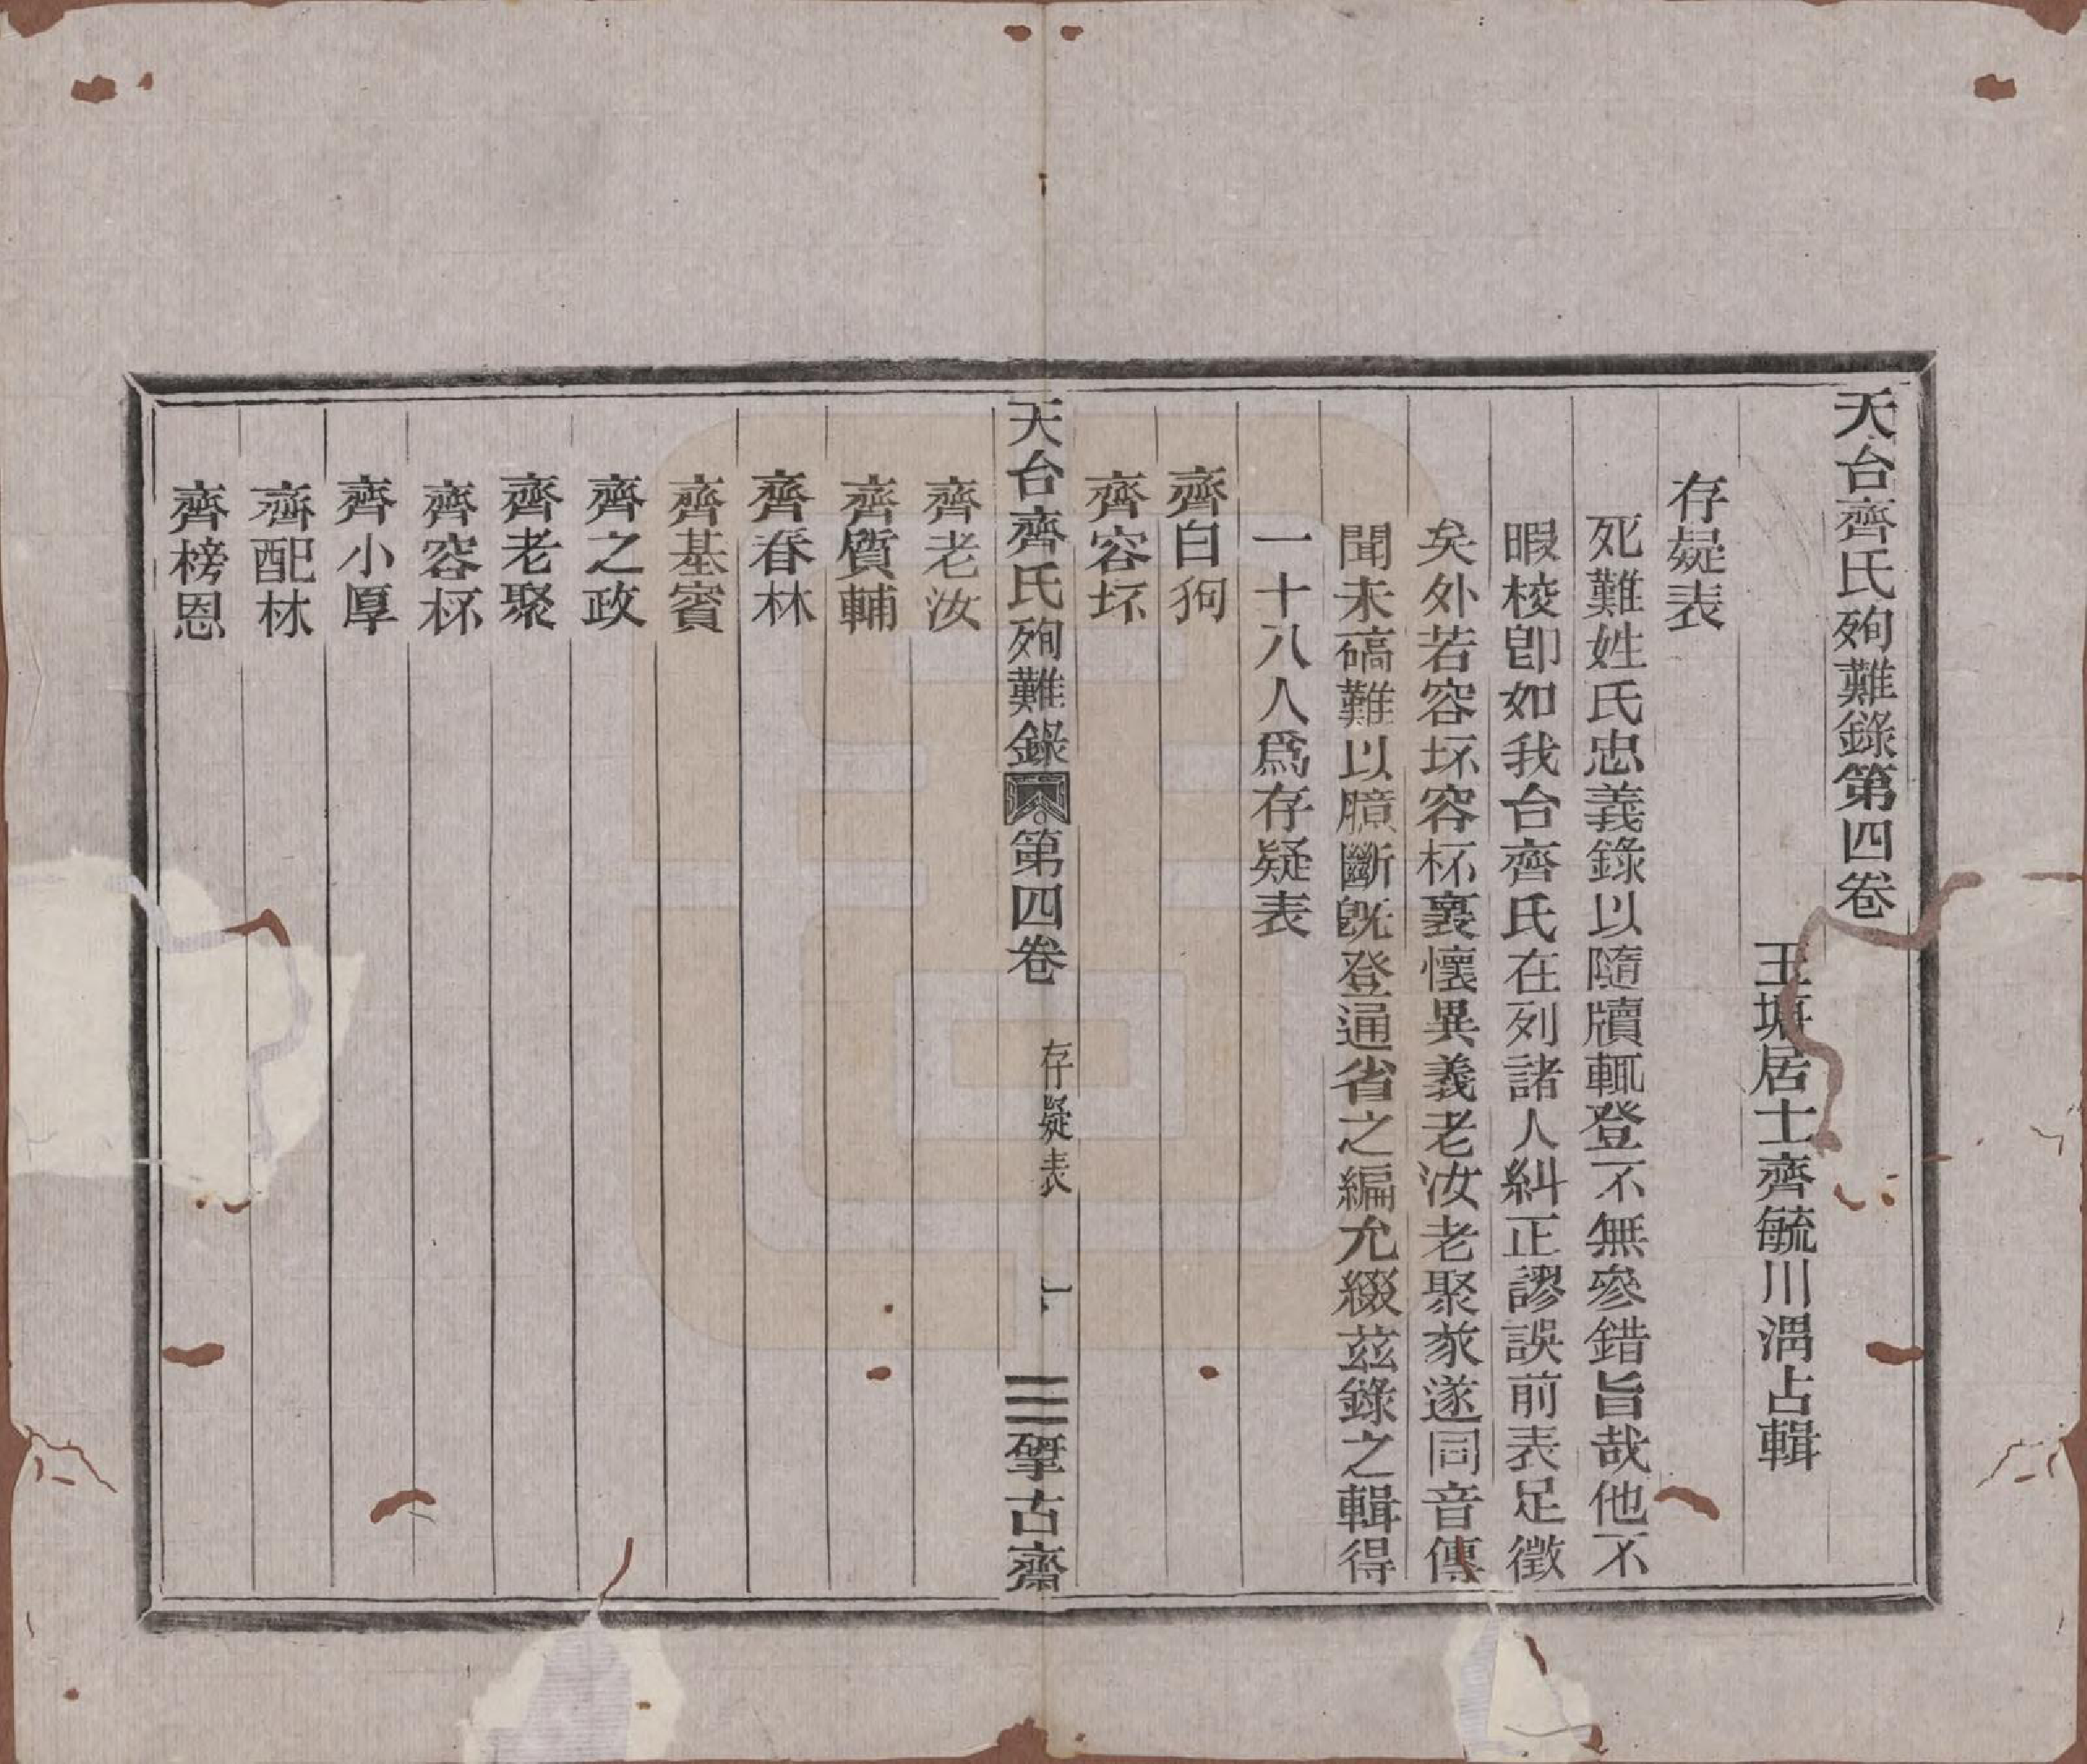 天台齊氏殉難錄第四卷
王塘居士齊毓川渭占輯
存疑表
死難姓氏忠義錄以隨牘輒登不無參錯旨哉他不
暇校卽如我台齊氏在列諸人糾正謬誤前表足徵
矣外若容坏容杯襄懷異義老汝老聚家遂同音傳
聞未碻難以臆斷旣登通省之編允綴茲錄之輯得
一十八人爲存疑表
齊白狗
齊容坏
天台齊氏殉難錄 第四卷 存疑表 一 揅古齋
齊老汝
齊質輔
齊春林
齊基賓
齊之政
齊老聚
齊容杯
齊小厚
齊配林
齊榜恩